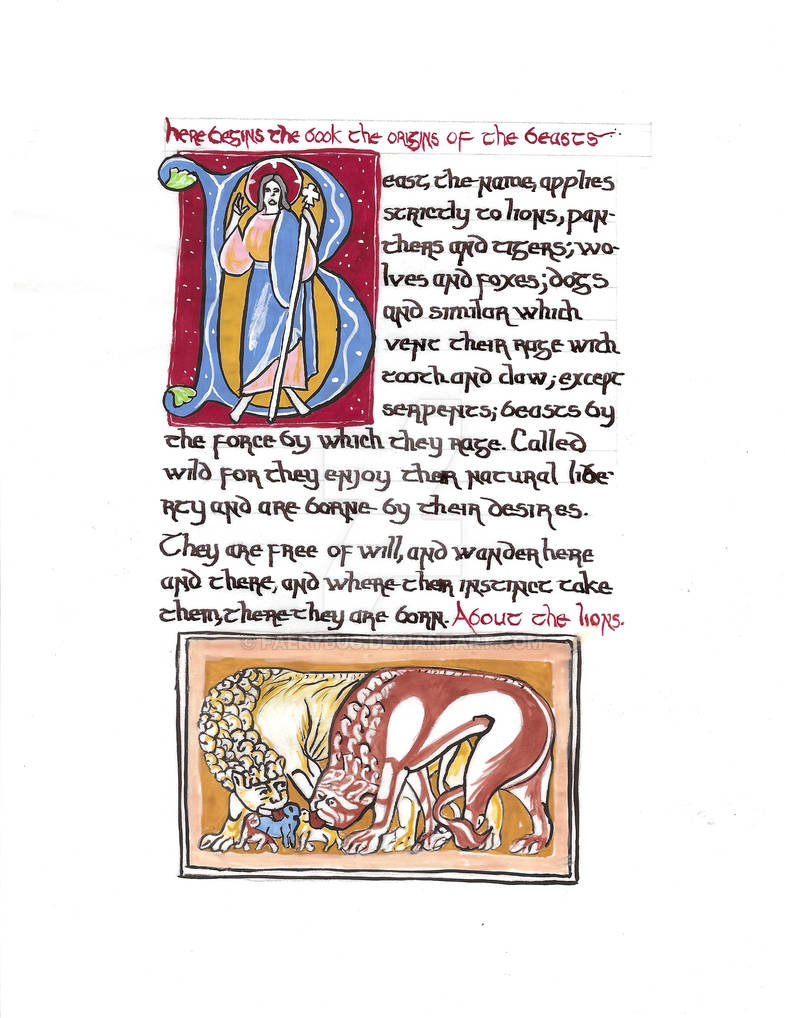 here begins the book the origins of the beasts
Beast, the name, applies
strictly to lions, pan-
thers and tigers; wo-
lves and foxes; dogs
and similar which
vent their rage with
tooth and claw; except
serpents; beasts by
the force by which they rage. Called
wild for they enjoy ther natural libe-
rty and are borne by their desires.
They are free of will, and wander here
and there, and where ther instinct take
them, there they are born. About the lions.
© FAERYBUG.DEVIANTART.COM